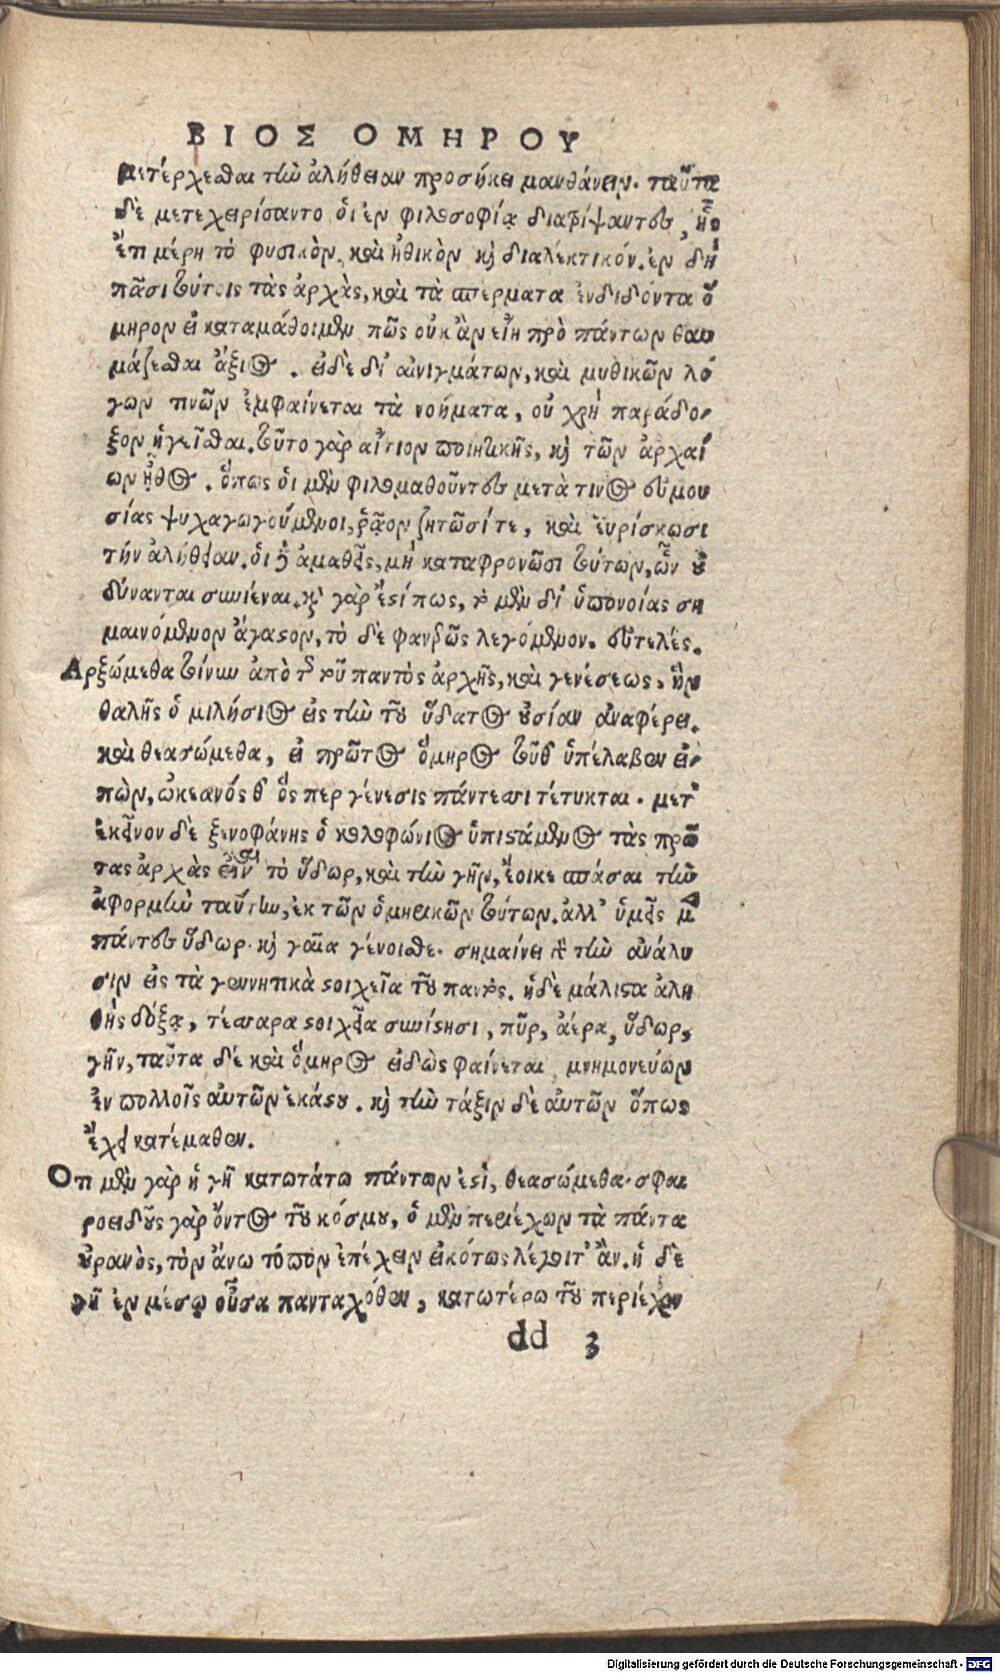 ΒΙΟΣ ΟΜΗΡΟΥ
μετέρχεσθαι τὴν ἀλήθειαν προσήκει μανθάνειν. ταῦτα
δὲ μετεχειρίσαντο ὁι ἐν φιλοσοφίᾳ διατρίψαντες, ἧς
ἔτι μέρη τὸ φυσικὸν, καὶ ἠθικὸν κὶ διαλέκτικόν. ἐν δὴ
πᾶσι τούτοις τὰς ἀρχὰς, καὶ τὰ σπέρματα ἐνδιδόντα ὅ
μηρον εἰ καταμάθοιμεν πῶς οὐκ ἂν εἴη πρὸ πάντων θαυ
μάζεσθαι ἄξιος. εἰ δὲ δἰ αἰνιγμάτων, καὶ μυθικῶν λό
γων τινῶν ἐμφαίνεται τὰ νοήματα, οὐ χρὴ παράδο-
ξον ἡγεῖσθαι. τοῦτο γὰρ αἴτιον ποιητικῆς, κὶ τῶν ἀρχαί
ων ἦθος. ὅπως ὁι μὲν φιλομαθοῦντες μετὰ τινος εὐμου
σίας ψυχαγωγούμενοι, ῥᾷον ζητῶσί τε, καὶ ἑυρίσκωσι
τήν ἀλήθειαν. ὁι δὲ ἀμαθεῖς, μὴ καταφρονῶσι τούτων, ὧν οὐ
δύνανται συνιέναι. κὶ γὰρ ἔστί πως, τὸ μὲν δἰ ὑπονοίας ση
μαινόμενον ἄγαστον, τὸ δὲ φανερῶς λεγόμενον. εὐτελές.
Αρξώμεθα τοίνυν ἀπὸ τῆς τοῦ παντὸς ἀρχῆς, καὶ γενέσεως, ἣν
θαλῆς ὁ μιλήσιος εἰς τὴν τοῦ ὕδατος οὐσίαν ἀναφέρει.
καὶ θεασώμεθα, εἰ πρῶτος ὅμηρος τοῦθ ὑπέλαβεν εἰ-
πὼν, ὠκεανός θ ὅς περ γένεσις πάντεσσι τέτυκται. μετ᾽
ἐκεῖνον δὲ ξενοφάνης ὁ κολοφώνιος ὑπιστάμενος τὰς πρώ
τας ἀρχὰς εἶναι τὸ ὕδωρ, καὶ τὴν γῆν, ἔοικε σπάσαι τὴν
ἀφορμὴν ταύτην, ἐκ τῶν ὁμηρικῶν τούτων. ἀλλ᾽ ὑμεῖς μ
πάντες ὕδωρ κὶ γαῖα γένοισθε. σημαίνει γὰρ τὴν ἀνάλυ
σιν εἰς τὰ γεννητικὰ στοιχεῖα τοῦ παντός. ἡ δὲ μάλιστα ἀλη
θὴς δόξα, τέσσαρα στοιχεῖα συνίστησι, πῦρ, ἀέρα, ὕδωρ,
γῆν, ταῦτα δὲ καὶ ὅμηρος εἰδὼς φαίνεται, μνημονεύων
ἐν πολλοῖς αὐτῶν ἑκάστου. κὶ τὴν τάξιν δὲ αὐτῶν ὅπως
ἔχει κατέμαθεν.
Οτι μὲν γὰρ ἡ γῆ κατωτάτω πάντων ἐστὶ, θεασώμεθα. σφαι
ροειδοῦς γὰρ ὄντος τοῦ κόσμου, ὁ μὲν περιέχων τὰ πάντα
οὐρανὸς, τὸν ἄνω τόπον ἐπέχειν εἰκότως λέγοιτ᾽ ἂν. ἡ δὲ
γῆ ἐν μέσῳ οὖσα πανταχόθεν, κατωτέρω τοῦ περιέχον
dd 3
Digitalisierung gefördert durch die Deutsche Forschungsgemeinschaft - DFG